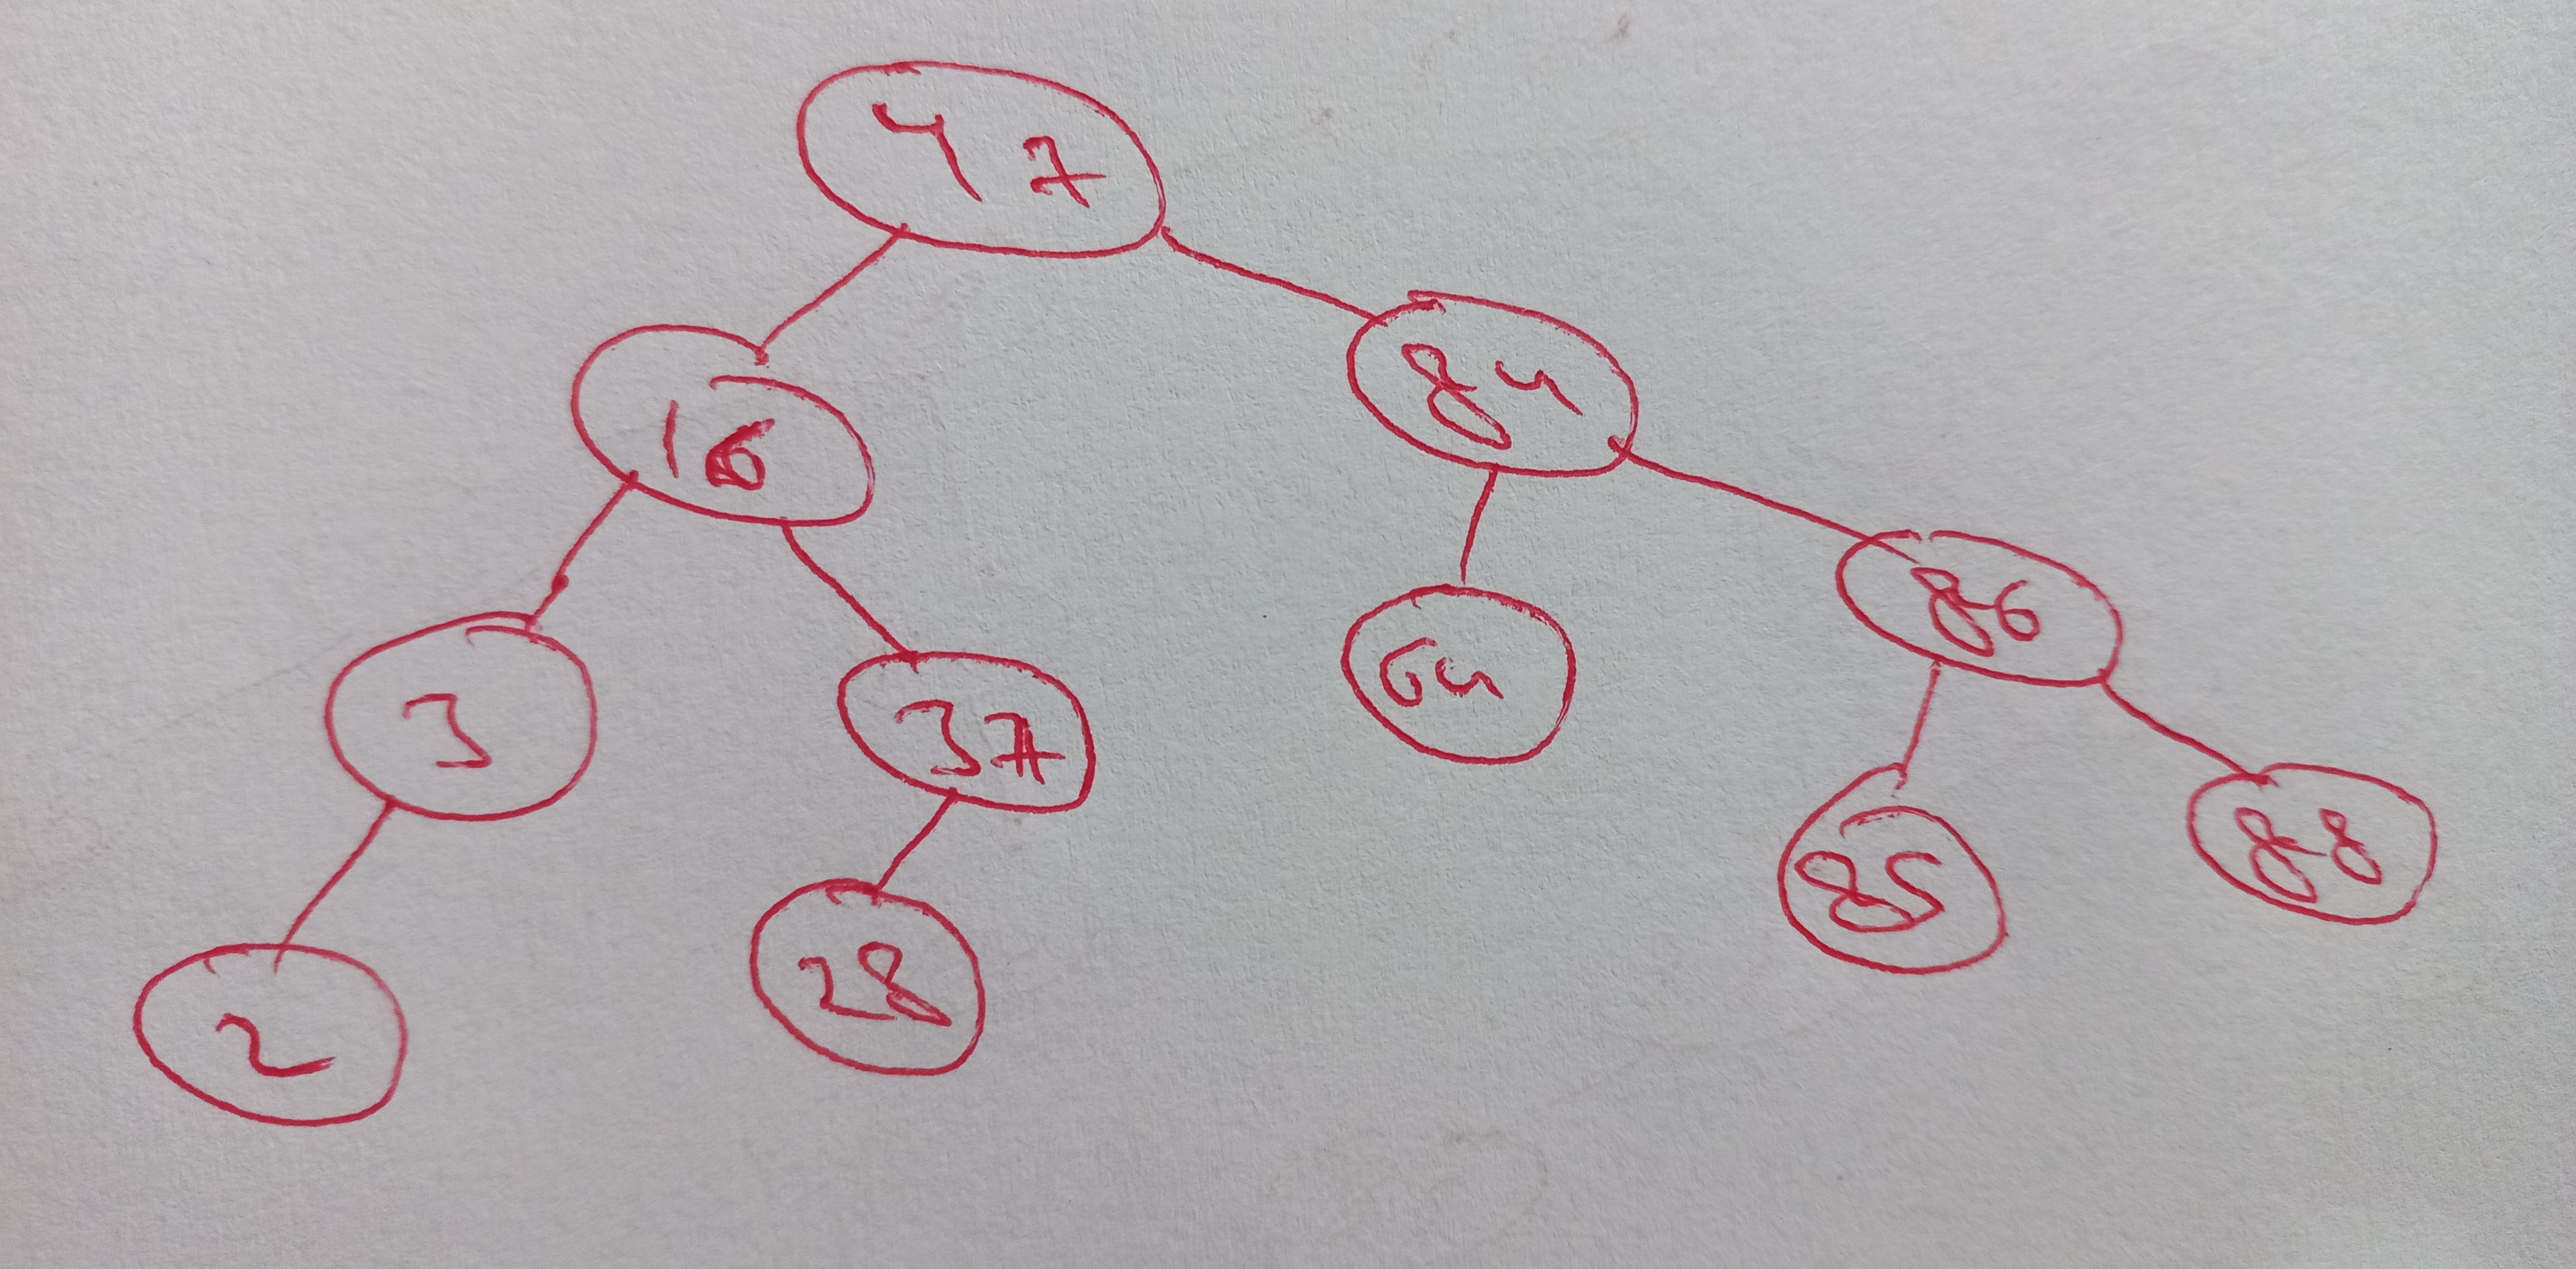 47
16 84
3 37 64 86
2 28 85 88